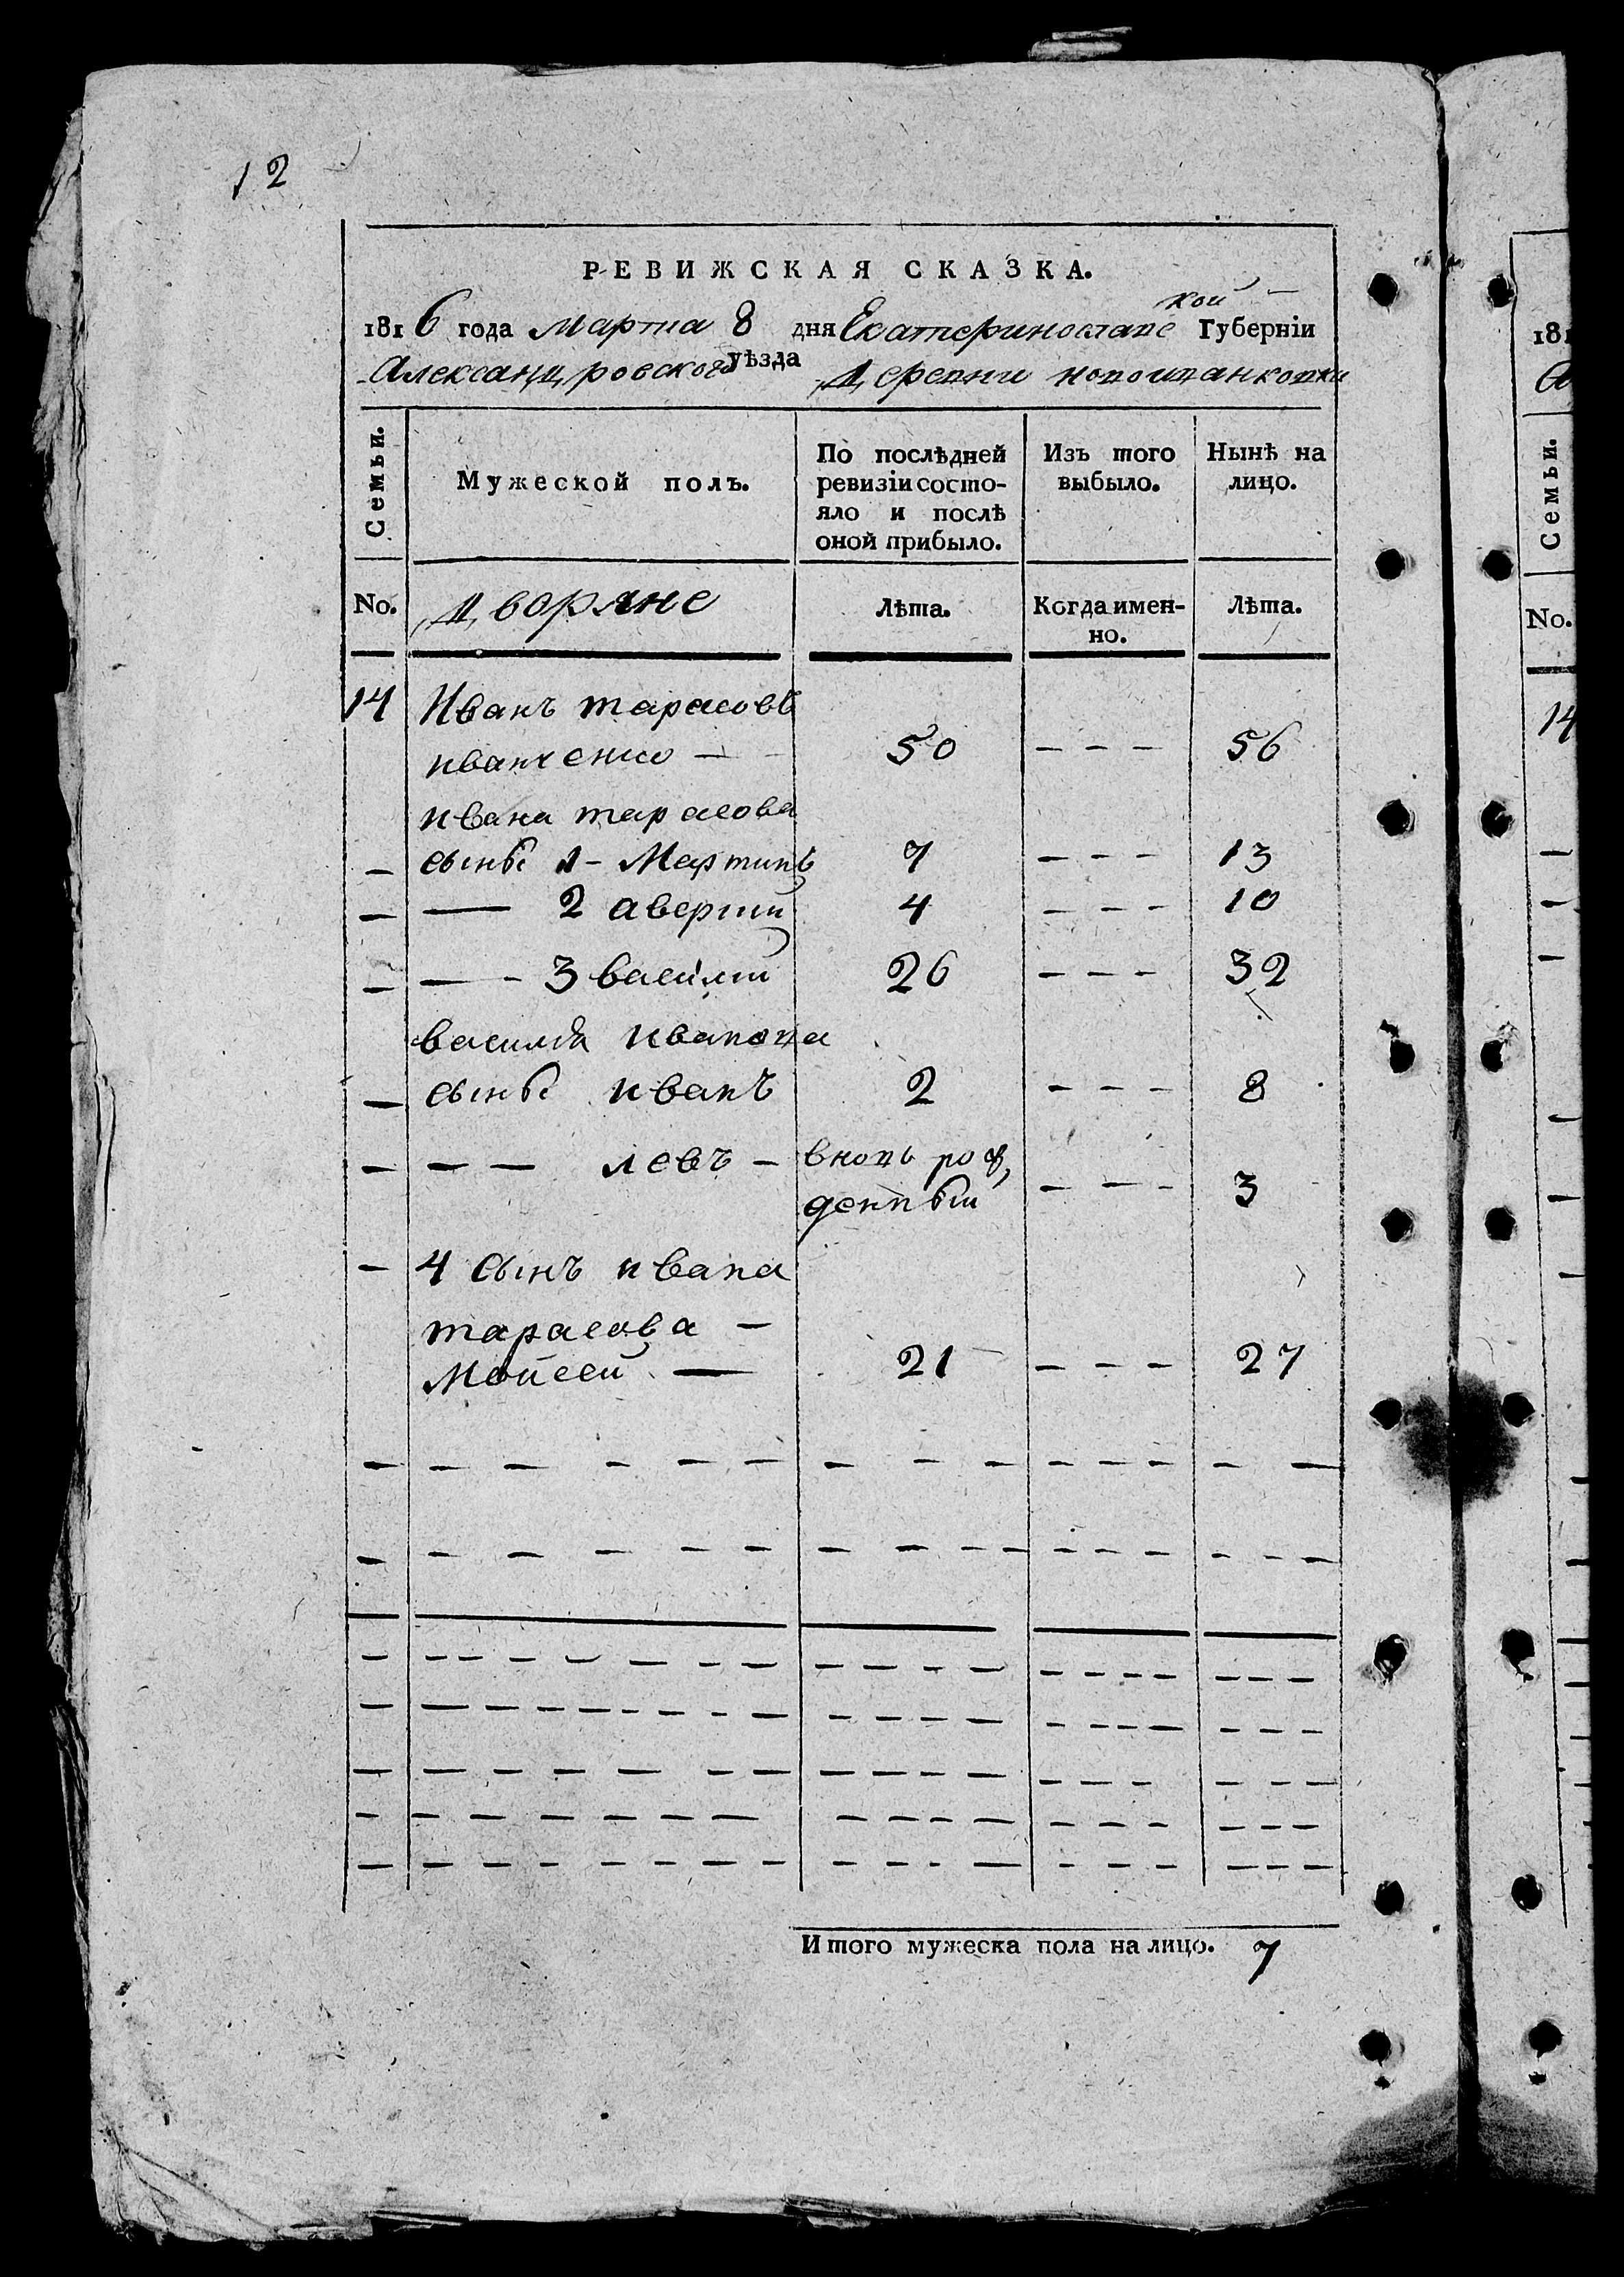 12
РЕВИЖСКАЯ СКАЗКА.
1816 года Марта 8 дня Екатеринославской Губерніи
Александровского уѣзда Деревни
Семьи. Мужеской полъ. По послѣдней ревизіи состо- Изъ того Нынѣ на
яло и послѣ оной прибыло. выбыло. лицо.
No. Дворяне Лѣта. Когда имен- Лѣта.
но.
14 Иванъ тарасовъ
иванченко — 50 - - - 56
ивана тарасова
— сыны 1 - Мартинъ 7 - - - 13
— — 2 аверкій 4 - - - 10
— — - 3 василій 26 - - - 32
василія иванова
— сыны иванъ 2 - - - 8
— — — левъ — вновь рож,
денный - - - 3
— 4 сынъ ивана
тарасова —
Мойсей — 21 - - - 27
Итого мужеска пола на лицо. 7
181
Семьи.
No.
14